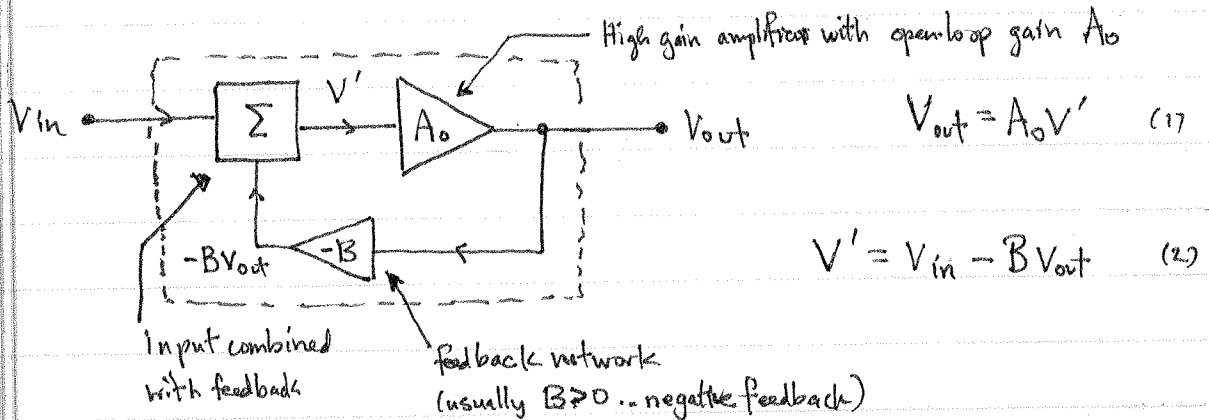 High gain amplifier with open loop gain A₀
V'
Vin
Σ
A₀
Vout
Vout = A₀V' (1)
-B
-BVout
V' = Vin - BVout (2)
Input combined
with feedback
feedback network
(usually B>0 .. negative feedback)